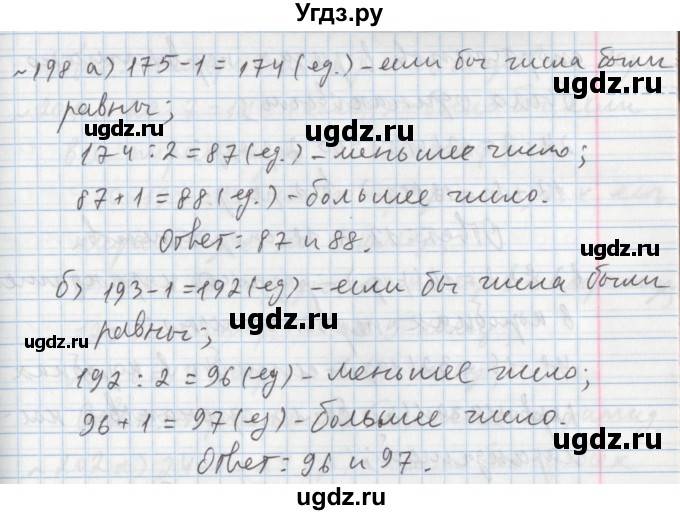 Угдз.ру
№198 а) 175-1=174(ед.) – если бы числа были
равны;
174:2=87(ед.) – меньшее число;
87+1=88(ед.) – большее число.
Ответ: 87 и 88.
б) 193-1=192(ед) – если бы числа были
равны;
192:2=96(ед) – меньшее число;
96+1=97(ед) – большее число.
Ответ: 96 и 97.
ugdz.ru
ugdz.ru
ugdz.ru
ugdz.ru
ugdz.ru
ugdz.ru
ugdz.ru
ugdz.ru
ugdz.ru
ugdz.ru